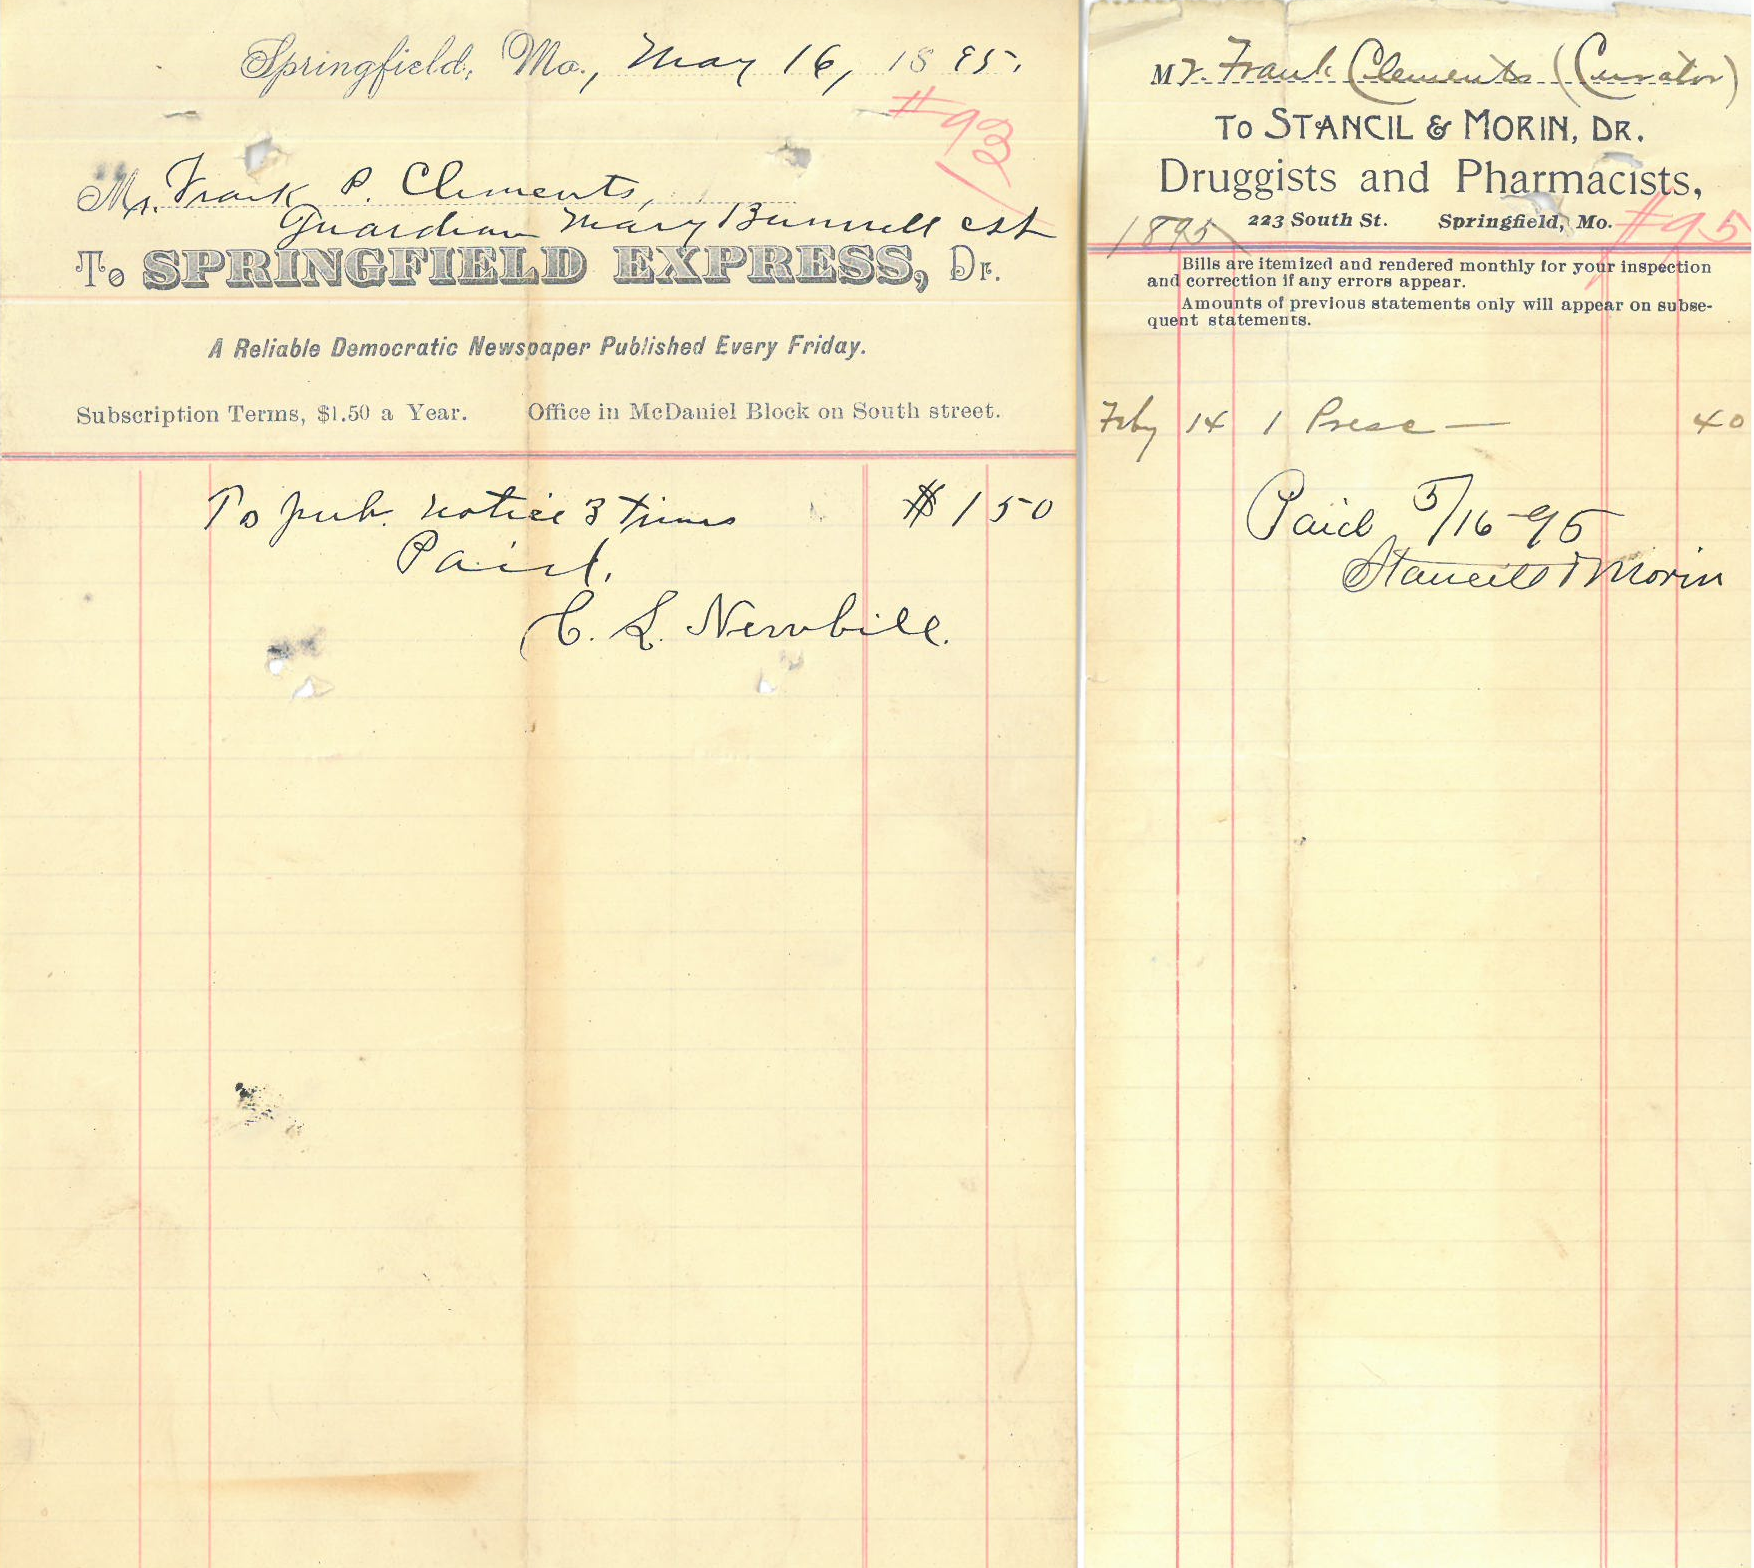 Springfield, Mo., May 16, 1895.
#93
Mr. Frank P. Clements,
Guardian Mary Bunnell est
To SPRINGFIELD EXPRESS, Dr.
A Reliable Democratic Newspaper Published Every Friday.
Subscription Terms, $1.50 a Year. Office in McDaniel Block on South street.
To pub. notice 3 times $1 50
Paid.
C. L. Newbill.
Mr. Frank Clements (Curator)
TO STANCIL & MORIN, DR.
Druggists and Pharmacists,
1895 223 South St. Springfield, Mo. #95
Bills are itemized and rendered monthly for your inspection
and correction if any errors appear.
Amounts of previous statements only will appear on subse-
quent statements.
Feby 14 1 Presc — 40
Paid 5/16-95
Stancill & Morin